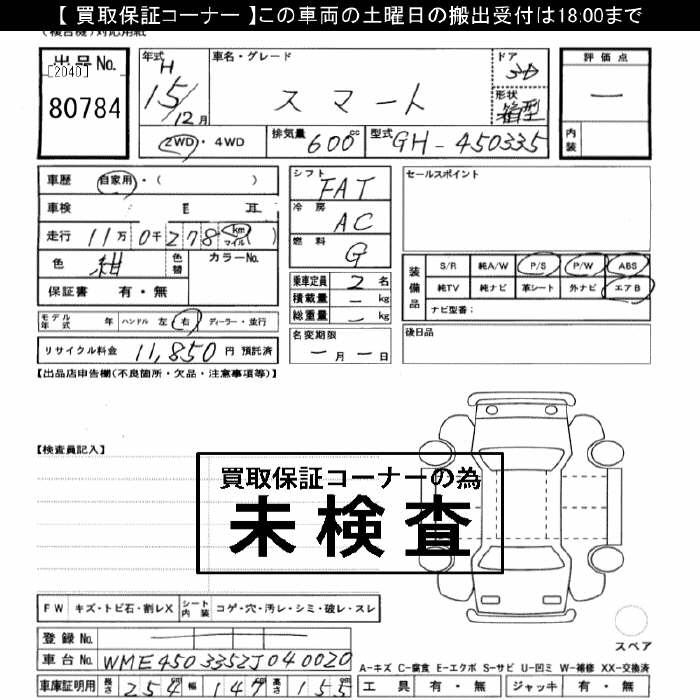 【 買取保証コーナー 】この車両の土曜日の搬出受付は18:00まで
(複合機)対応用紙
出品No.
[2040]
80784
年式 H 15/12月
車名・グレード
スマート
ドア 3D
形状 箱型
評価点
ー
内装
2WD・4WD
排気量 600cc
型式 GH-450335
車歴 自家用・( )
車検
走行 11万0千278km マイル( )
色 紺
色替
カラーNo.
保証書 有・無
シフト FAT
冷房 AC
燃料 G
乗車定員 2名
積載量 ー kg
総重量 ー kg
セールスポイント
装備品
S/R 純A/W P/S P/W ABS
純TV 純ナビ 革シート 外ナビ エアB
ナビ型番:
モデル年式 年 ハンドル 左 右 ディーラー・並行
リサイクル料金 11,850 円 預託済
名変期限
ー月ー日
後日品
【出品店申告欄(不良箇所・欠品・注意事項等)】
【検査員記入】
買取保証コーナーの為
未検査
FW キズ・トビ石・割レX シート内装 コゲ・穴・汚レ・シミ・破レ・スレ
登録No.
車台No. WME4503352J040020
車庫証明用 長さ 254cm 幅 147cm 高さ 155cm
スペア
A-キズ C-腐食 E-エクボ S-サビ U-凹ミ W-補修 XX-交換済
工具 有・無 ジャッキ 有・無